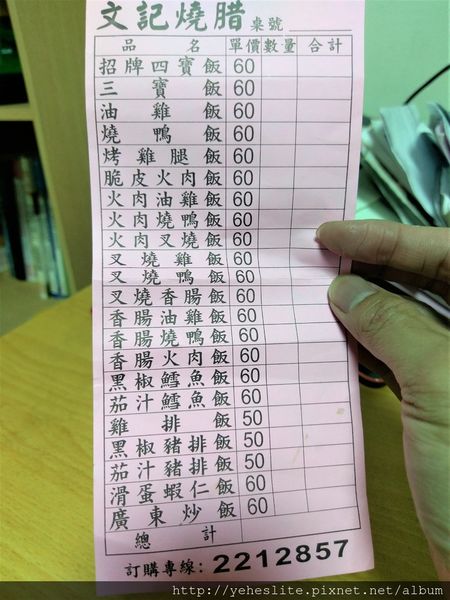 文記燒腊 桌號
品名 單價 數量 合計
招牌四寶飯 60
三寶飯 60
油雞飯 60
燒鴨飯 60
烤雞腿飯 60
脆皮火肉飯 60
火肉油雞飯 60
火肉燒鴨飯 60
火肉叉燒飯 60
叉燒雞飯 60
叉燒鴨飯 60
叉燒香腸飯 60
香腸油雞飯 60
香腸燒鴨飯 60
香腸火肉飯 60
黑椒鱈魚飯 60
茄汁鱈魚飯 60
雞排飯 50
黑椒豬排飯 50
茄汁豬排飯 50
滑蛋蝦仁飯 60
廣東炒飯 60
總計
訂購專線: 2212857
http://yeheslite.pixnet.net/album